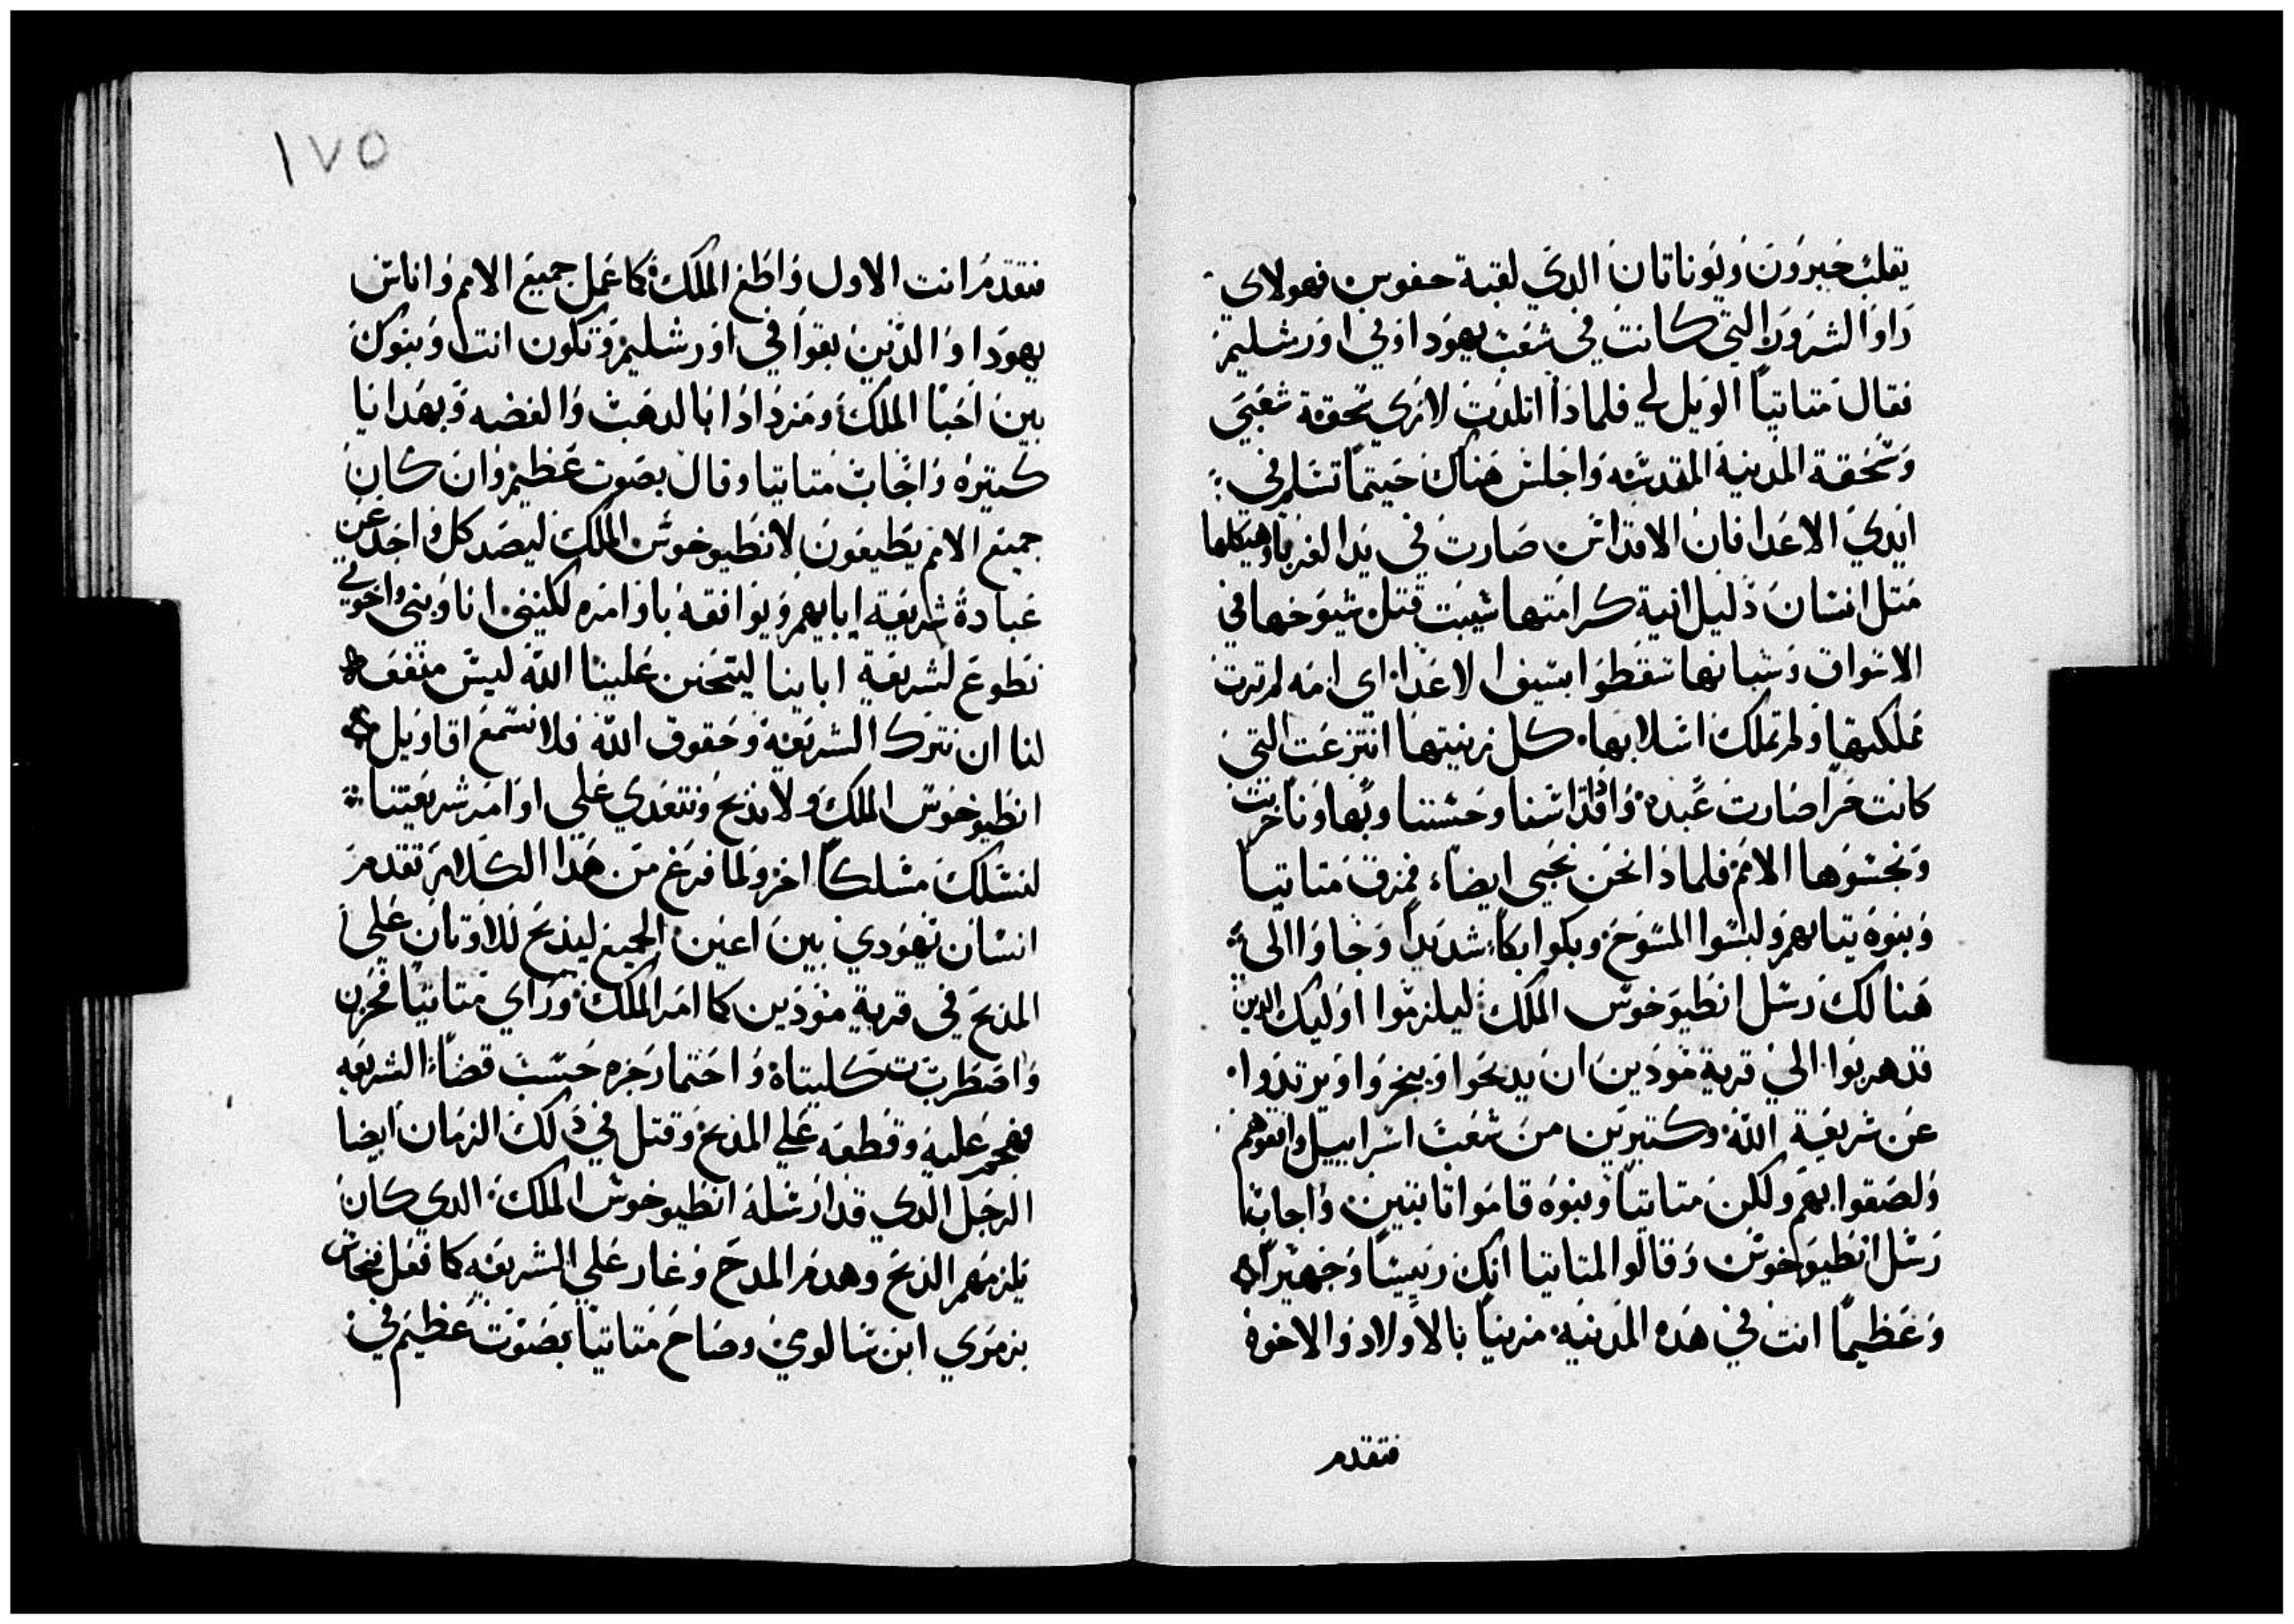 يقلب خبرون ويوناتان الدي لقبة حفوس فهولاي
راوا الشرور التي كانت في شعب يهودا وفي اورشليم
فقال متاتيا الويل لي فلماذا اتلدت لاري تحقة شعبي
وتحقة المدينة المقدسه واجلس هناك حيتما تسلم في
ايدي الاعدا فان الاقداس صارت في يد الغربا وهيكلها
متل انسان دليل انية كرامتها سبيت قتل شيوخها في
الاسواق وشبانها سقطوا بسيف الاعدا اي امه لم ترت
مملكتها ولم تملك اسلابها كل زينتها انتزعت التي
كانت حرا صارت عبده واقداسنا وحسننا وبهاونا خربت
ونجسوها الامم فلماذا نحن نحيى ايضاء فمزق متاتيا
وبنوه تيابهم ولبسوا المسوح وبكوا بكاء شديدا وجاوا الى
هنالك رسل انطيوخوس الملك ليلزموا اوليك الدين
قد هربوا الي قرية مودين ان يدبحوا ويبخروا ويرتدوا
عن شريعة الله وكتيرين من شعب اسراييل واتفوهم
ولصقوا بهم ولكن متاتيا وبنوه قاموا تابتين واجابوا
رسل انطيوخوس وقالوا لمتاتيا انك رييسا وجهيرا
وعظيما انت في هده المدينه مزينا بالاولاد والاخوه
فتقدم
١٧٥
فتقدم انت الاول واطع الملك كما عمل جميع الامم واناس
يهودا والدين بقوا في اورشليم وتكون انت وبنوك
بين احبا الملك ومزدادا بالدهب والفضه وبهدايا
كتيره واجاب متاتيا وقال بصوت عظيم وان كان
جميع الامم يطيعون لانطيوخوس الملك ليصد كل واحد عن
عبادة شريعة ابايهم ويوافقه باوامره لكنني انا وبني واخوتي
نطوع لشريعة اباينا ليتحنن علينا الله ليس متفعه
لنا ان نترك الشريعة وحقوق الله فلا نسمع اقاويل
انطيوخوس الملك ولا ندبح ونتعدي علي اوامر شريعتنا
لنسلك مسلكا اخر ولما فرغ من هدا الكلام تقدم
انسان يهودي بين اعين الجميع ليذبح للاوتان علي
المذبح في قرية مودين كما امر الملك وراي متاتيا فحزن
واضطربت كليتاه واحتما رجزه حسب قضاء الشريعه
فهجم عليه وقطعه علي المذبح وقتل في دلك الزمان ايضا
الرجل الدي قد ارسله انطيوخوس الملك الدي كان
يلزمهم الذبح وهدم المدبح وغار علي الشريعه كما فعل فنحاس
بزمري ابن سالوي وصاح متاتيا بصوت عظيم في